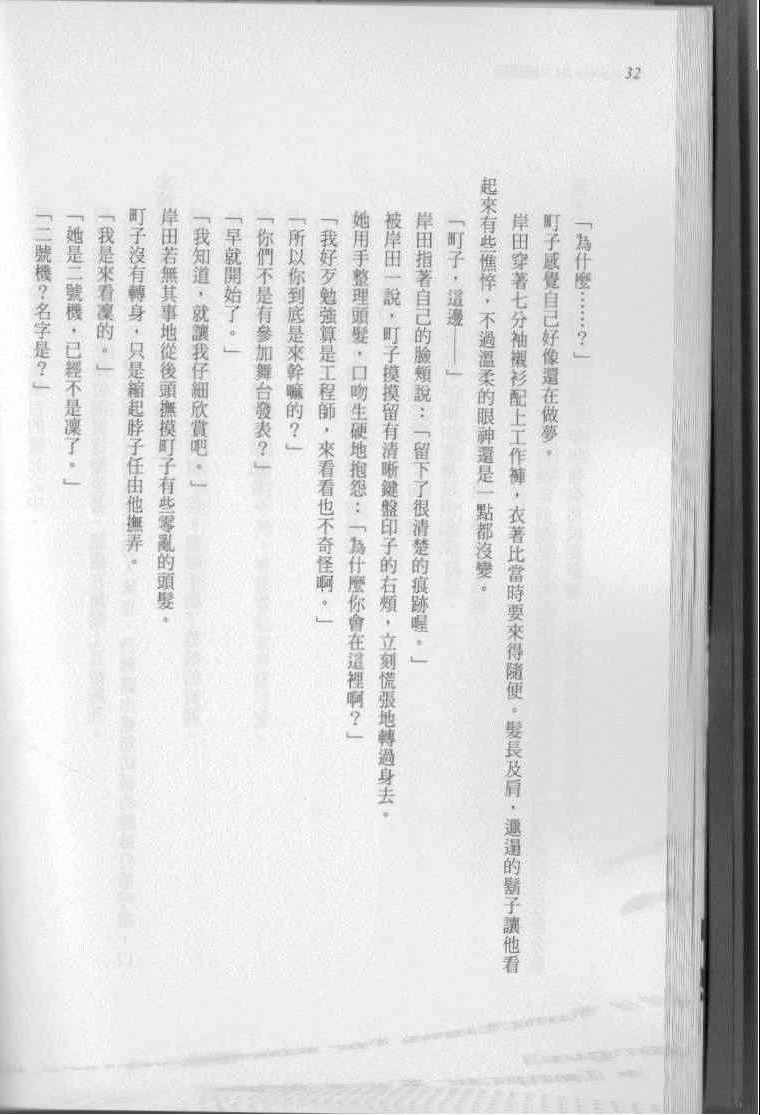 32
「為什麼……？」
町子感覺自己好像還在做夢。
岸田穿著七分袖襯衫配上工作褲，衣著比當時要來得隨便。髮長及肩，邋遢的鬍子讓他看
起來有些憔悴，不過溫柔的眼神還是一點都沒變。
「町子，這邊——」
岸田指著自己的臉頰說：「留下了很清楚的痕跡喔。」
被岸田一說，町子摸摸留有清晰鍵盤印子的右頰，立刻慌張地轉過身去。
她用手整理頭髮，口吻生硬地抱怨：「為什麼你會在這裡啊？」
「我好歹勉強算是工程師，來看看也不奇怪啊。」
「所以你到底是來幹嘛的？」
「你們不是有參加舞台發表？」
「早就開始了。」
「我知道，就讓我仔細欣賞吧。」
岸田若無其事地從後頭撫摸町子有些零亂的頭髮。
町子沒有轉身，只是縮起脖子任由他撫弄。
「我是來看凜的。」
「她是二號機，已經不是凜了。」
「二號機？名字是？」